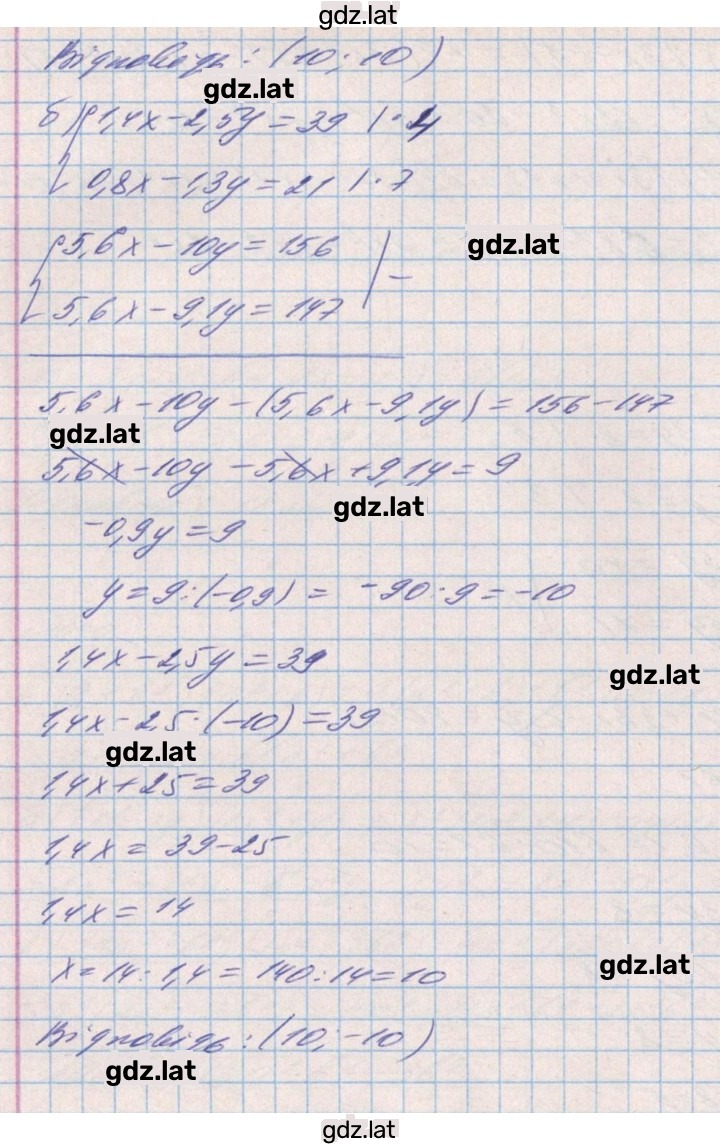 gdz.lat
Відповідь: (10; 10)
gdz.lat
б) { 1,4x - 2,5y = 39 | · 4
0,8x - 1,3y = 21 | · 7
{ 5,6x - 10y = 156
gdz.lat
5,6x - 9,1y = 147 | -
5,6x - 10y - (5,6x - 9,1y) = 156 - 147
gdz.lat
5,6x - 10y - 5,6x + 9,1y = 9
gdz.lat
-0,9y = 9
y = 9 : (-0,9) = -90 : 9 = -10
1,4x - 2,5y = 39
gdz.lat
1,4x - 2,5 · (-10) = 39
gdz.lat
1,4x + 25 = 39
1,4x = 39 - 25
1,4x = 14
gdz.lat
x = 14 : 1,4 = 140 : 14 = 10
Відповідь: (10; -10)
gdz.lat
gdz.lat